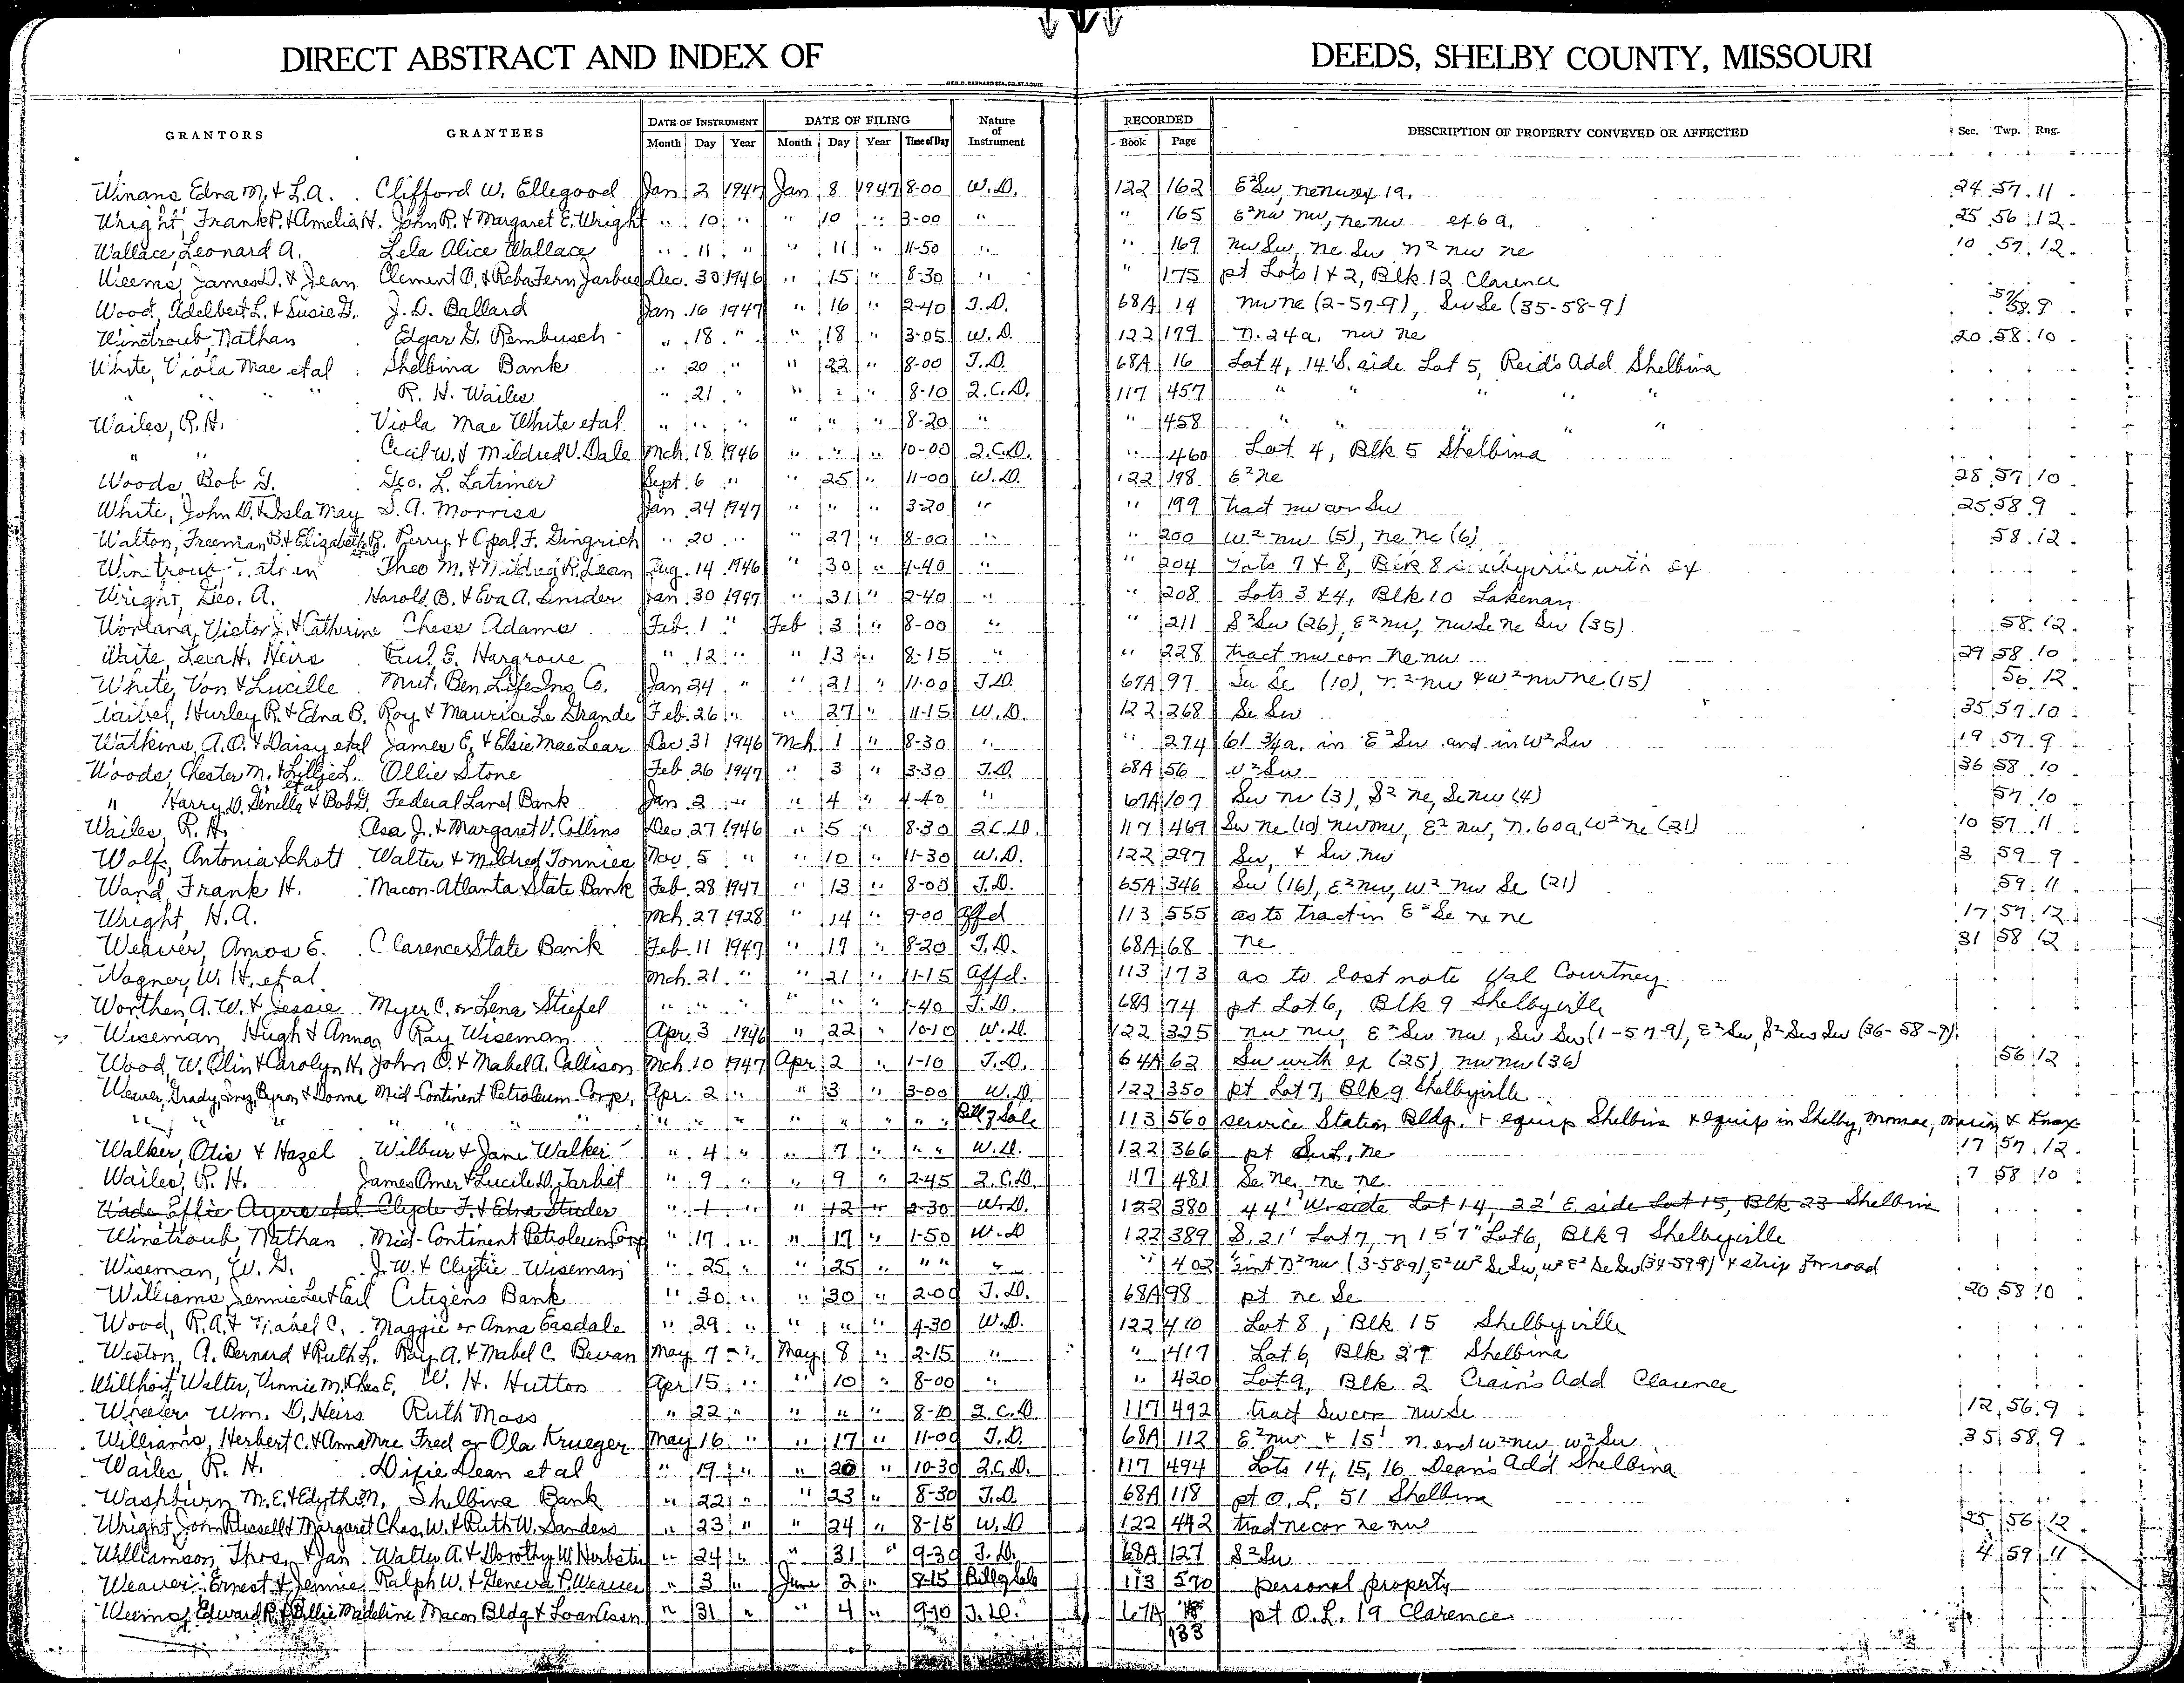 DIRECT ABSTRACT AND INDEX OF DEEDS, SHELBY COUNTY, MISSOURI
GEO. D. BARNARD STA. CO. ST. LOUIS
GRANTORS GRANTEES DATE OF INSTRUMENT DATE OF FILING Nature of Instrument RECORDED DESCRIPTION OF PROPERTY CONVEYED OR AFFECTED Sec. Twp. Rng.
Month Day Year Month Day Year Time of Day Book Page
Winans Edna M. & L.A. Clifford W. Ellegood Jan 2 1947 Jan 8 1947 8-00 W.D. 122 162 E²Sw, nenwex 19. 24 57 11
Wright, Frank P. & Amelia H. John R. & Margaret E. Wright " 10 " " 10 " 3-00 " " 165 E²nw nw, ne nw ex 6a. 25 56 12
Wallace, Leonard A. Lela Alice Wallace " 11 " " 11 " 11-50 " " 169 nw Sw, ne Sw n² nw ne 10 57 12
Weems, James D. & Jean Clement O. & Reba Fern Jarboe Dec. 30 1946 " 15 " 8-30 " " 175 pt Lots 1 & 2, Blk 12 Clarence
Wood, Adelbert L. & Susie G. J. D. Ballard Jan 16 1947 " 16 " 2-40 T.D. 68A 14 nw ne (2-57-9), Sw Se (35-58-9) 57/58 9
Winetroub, Nathan Edgar G. Rembusch " 18 " " 18 " 3-05 W.D. 122 179 n. 24a. nw ne 20 58 10
White, Viola Mae etal Shelbina Bank " 20 " " 22 " 8-00 T.D. 68A 16 Lot 4, 14' S. side Lot 5, Reid's Add Shelbina
" " " R. H. Wailes " 21 " " " " 8-10 2.C.D. 117 457 " " " " "
Wailes, R.H. Viola Mae White etal " " " " " " 8-20 " " 458 " " " " "
" " Cecil W. & Mildred V. Dale Mch. 18 1946 " " " 10-00 2.C.D. " 460 Lot 4, Blk 5 Shelbina
Woods, Bob G. Geo. L. Latimer Sept. 6 " " 25 " 11-00 W.D. 122 198 E² ne 28 57 10
White, John D. & Isla May S. A. Morriss Jan 24 1947 " " " 3-20 " " 199 tract nw cor Sw 25 58 9
Walton, Freeman B. & Elizabeth R. etal Perry & Opal F. Gingrich " 20 " " 27 " 8-00 " " 200 w² nw (5), ne ne (6) 58 12
Winetroub, Nathan Theo M. & Mildred R. Lean Aug. 14 1946 " 30 " 4-40 " " 204 Lots 7 & 8, Blk 8 Shelbyville with ex
Wright, Geo. A. Harold B. & Eva A. Snider Jan 30 1947 " 31 " 2-40 " " 208 Lots 3 & 4, Blk 10 Lakenan
Worland, Victor J. & Catherine Chess Adams Feb. 1 " Feb 3 " 8-00 " " 211 S²Sw (26), E² nw, nw Se ne Sw (35) 58 12
Waite, Lera H. Heirs Paul E. Hargrove " 12 " " 13 " 8-15 " " 228 tract nw cor ne nw 29 58 10
White, Von & Lucille Mut. Ben. Life Ins. Co. Jan 24 " " 21 " 11-00 T.D. 67A 97 Sw Se (10), n² nw & w² nw ne (15) 56 12
Waibel, Hurley R. & Edna B. Roy & Maurice Le Grande Feb. 26 " " 27 " 11-15 W.D. 122 268 Se Sw 35 57 10
Watkins, A.O. & Daisy etal James E. & Elsie Mae Lear Dec 31 1946 Mch 1 " 8-30 " " 274 61 3/4a. in E² Sw and in W² Sw 19 57 9
Woods, Chester M. & Lillie L. Ollie Stone Feb 26 1947 " 3 " 3-30 T.D. 68A 56 w² Sw 36 58 10
" Harry D. Denella & Bob G. etal Federal Land Bank Jan 2 " " 4 " 4-40 " 67A 107 Sw nw (3), S² ne, Se nw (4) 57 10
Wailes, R. H. Asa J. & Margaret V. Collins Dec 27 1946 " 5 " 8-30 2.C.D. 117 469 Sw ne (10) nw nw, E² nw, n. 60a, W² ne (21) 10 57 11
Wolf, Antonia Schott Walter & Mildred Tonnies Nov 5 " " 10 " 11-30 W.D. 122 297 Sw, & Sw nw 3 59 9
Ward, Frank H. Macon-Atlanta State Bank Feb. 28 1947 " 13 " 8-00 T.D. 65A 346 Sw (16), E² nw, w² nw Se (21) 59 11
Wright, H.A. Mch. 27 1928 " 14 " 9-00 Affd 113 555 as to tract in E² Se ne ne 17 57 12
Weaver, Amos E. Clarence State Bank Feb. 11 1947 " 17 " 8-20 T.D. 68A 68 ne 31 58 12
Wagner, W. H. etal Mch. 21 " " 21 " 11-15 Affd. 113 173 as to lost note Val Courtney
Worthen, A. W. & Jessie Myer C. or Lena Stiefel " " " " " " 1-40 T.D. 68A 74 pt Lot 6, Blk 9 Shelbyville
Wiseman, Hugh & Anna Ray Wiseman Apr. 3 1946 " 22 " 10-10 W.D. 122 325 nw nw, E² Sw nw, Sw Sw (1-57-9), E² Sw, S² Sw Sw (36-58-9)
Wood, W. Olin & Carolyn H. John O. & Mabel A. Callison Mch 10 1947 Apr. 2 " 1-10 T.D. 64A 62 Sw with ex (25), nw nw (36) 56 12
Weaver, Grady, Inez, Byron & Donna Mid-Continent Petroleum Corp. Apr. 2 " " 3 " 3-00 W.D. 122 350 pt Lot 7, Blk 9 Shelbyville
" " " " " " " " " " " " " Bill of Sale 113 560 service Station Bldg. & equip Shelbina & equip in Shelby, Monroe, Macon & Knox
Walker, Otis & Hazel Wilbur & Jane Walker " 4 " " 7 " " " W.D. 122 366 pt ne 17 57 12
Wailes, R. H. James Omer & Lucile D. Tarbet " 9 " " 9 " 2-45 2.C.D. 117 481 Se ne, ne ne 7 58 10
Wade Effie Ayers etal Clyde F. & Edna Studer " 1 " " 12 " 2-30 W.D. 122 380 44' W. side Lot 14, 22' E. side Lot 15, Blk 23 Shelbina
Winetroub, Nathan Mid-Continent Petroleum Corp " 17 " " 17 " 1-50 W.D 122 389 S. 21' Lot 7, n 15'7" Lot 6, Blk 9 Shelbyville
Wiseman, W. G. J. W. & Clytie Wiseman " 25 " " 25 " " " " " 402 int n² nw (3-58-9), E² W² Se Sw, w² E² Se Sw (34-59-9) & strip for road
Williams, Jennie Lee & Earl Citizens Bank " 30 " " 30 " 2-00 T.D. 68A 98 pt ne Se 20 58 10
Wood, R.A. & Mabel C. Maggie or Anna Easdale " 29 " " " " 4-30 W.D. 122 410 Lot 8, Blk 15 Shelbyville
Weston, A. Bernard & Ruth L. Ray A. & Mabel C. Bevan May 7 " May 8 " 2-15 " " 417 Lot 6, Blk 27 Shelbina
Willhoit, Walter, Vinnie M. & Chas E. W. H. Hutton Apr 15 " " 10 " 8-00 " " 420 Lot 9, Blk 2 Crain's Add Clarence
Wheeler, Wm. D. Heirs Ruth Moss " 22 " " " " 8-10 2.C.D. 117 492 tract Sw cor nw Se 12 56 9
Williams, Herbert C. & Anna Mae Fred or Ola Krueger May 16 " " 17 " 11-00 T.D. 68A 112 E² nw & 15' n. end w² nw, w² Sw 35 58 9
Wailes, R. H. Dixie Dean et al " 19 " " 20 " 10-30 2.C.D. 117 494 Lots 14, 15, 16 Dean's Add Shelbina
Washburn, M. E. & Edyth M. Shelbina Bank " 22 " " 23 " 8-30 T.D. 68A 118 pt O. L. 51 Shelbina
Wright, John Russell & Margaret Chas. W. & Ruth W. Sanders " 23 " " 24 " 8-15 W.D 122 442 tract ne cor ne nw 25 56 12
Williamson, Thos. & Jan Walter A. & Dorothy W. Herbster " 24 " " 31 " 9-30 T.D. 68A 127 S² Sw 4 59 11
Weaver, Ernest & Jennie Ralph W. & Geneva P. Weaver " 3 " June 2 " 8-15 Bill of Sale 113 570 personal property
Weems, Edward R. & Billie Madeline Macon Bldg & Loan Assn " 31 " " 4 " 9-10 T.D. 67A pt O. L. 19 Clarence
133